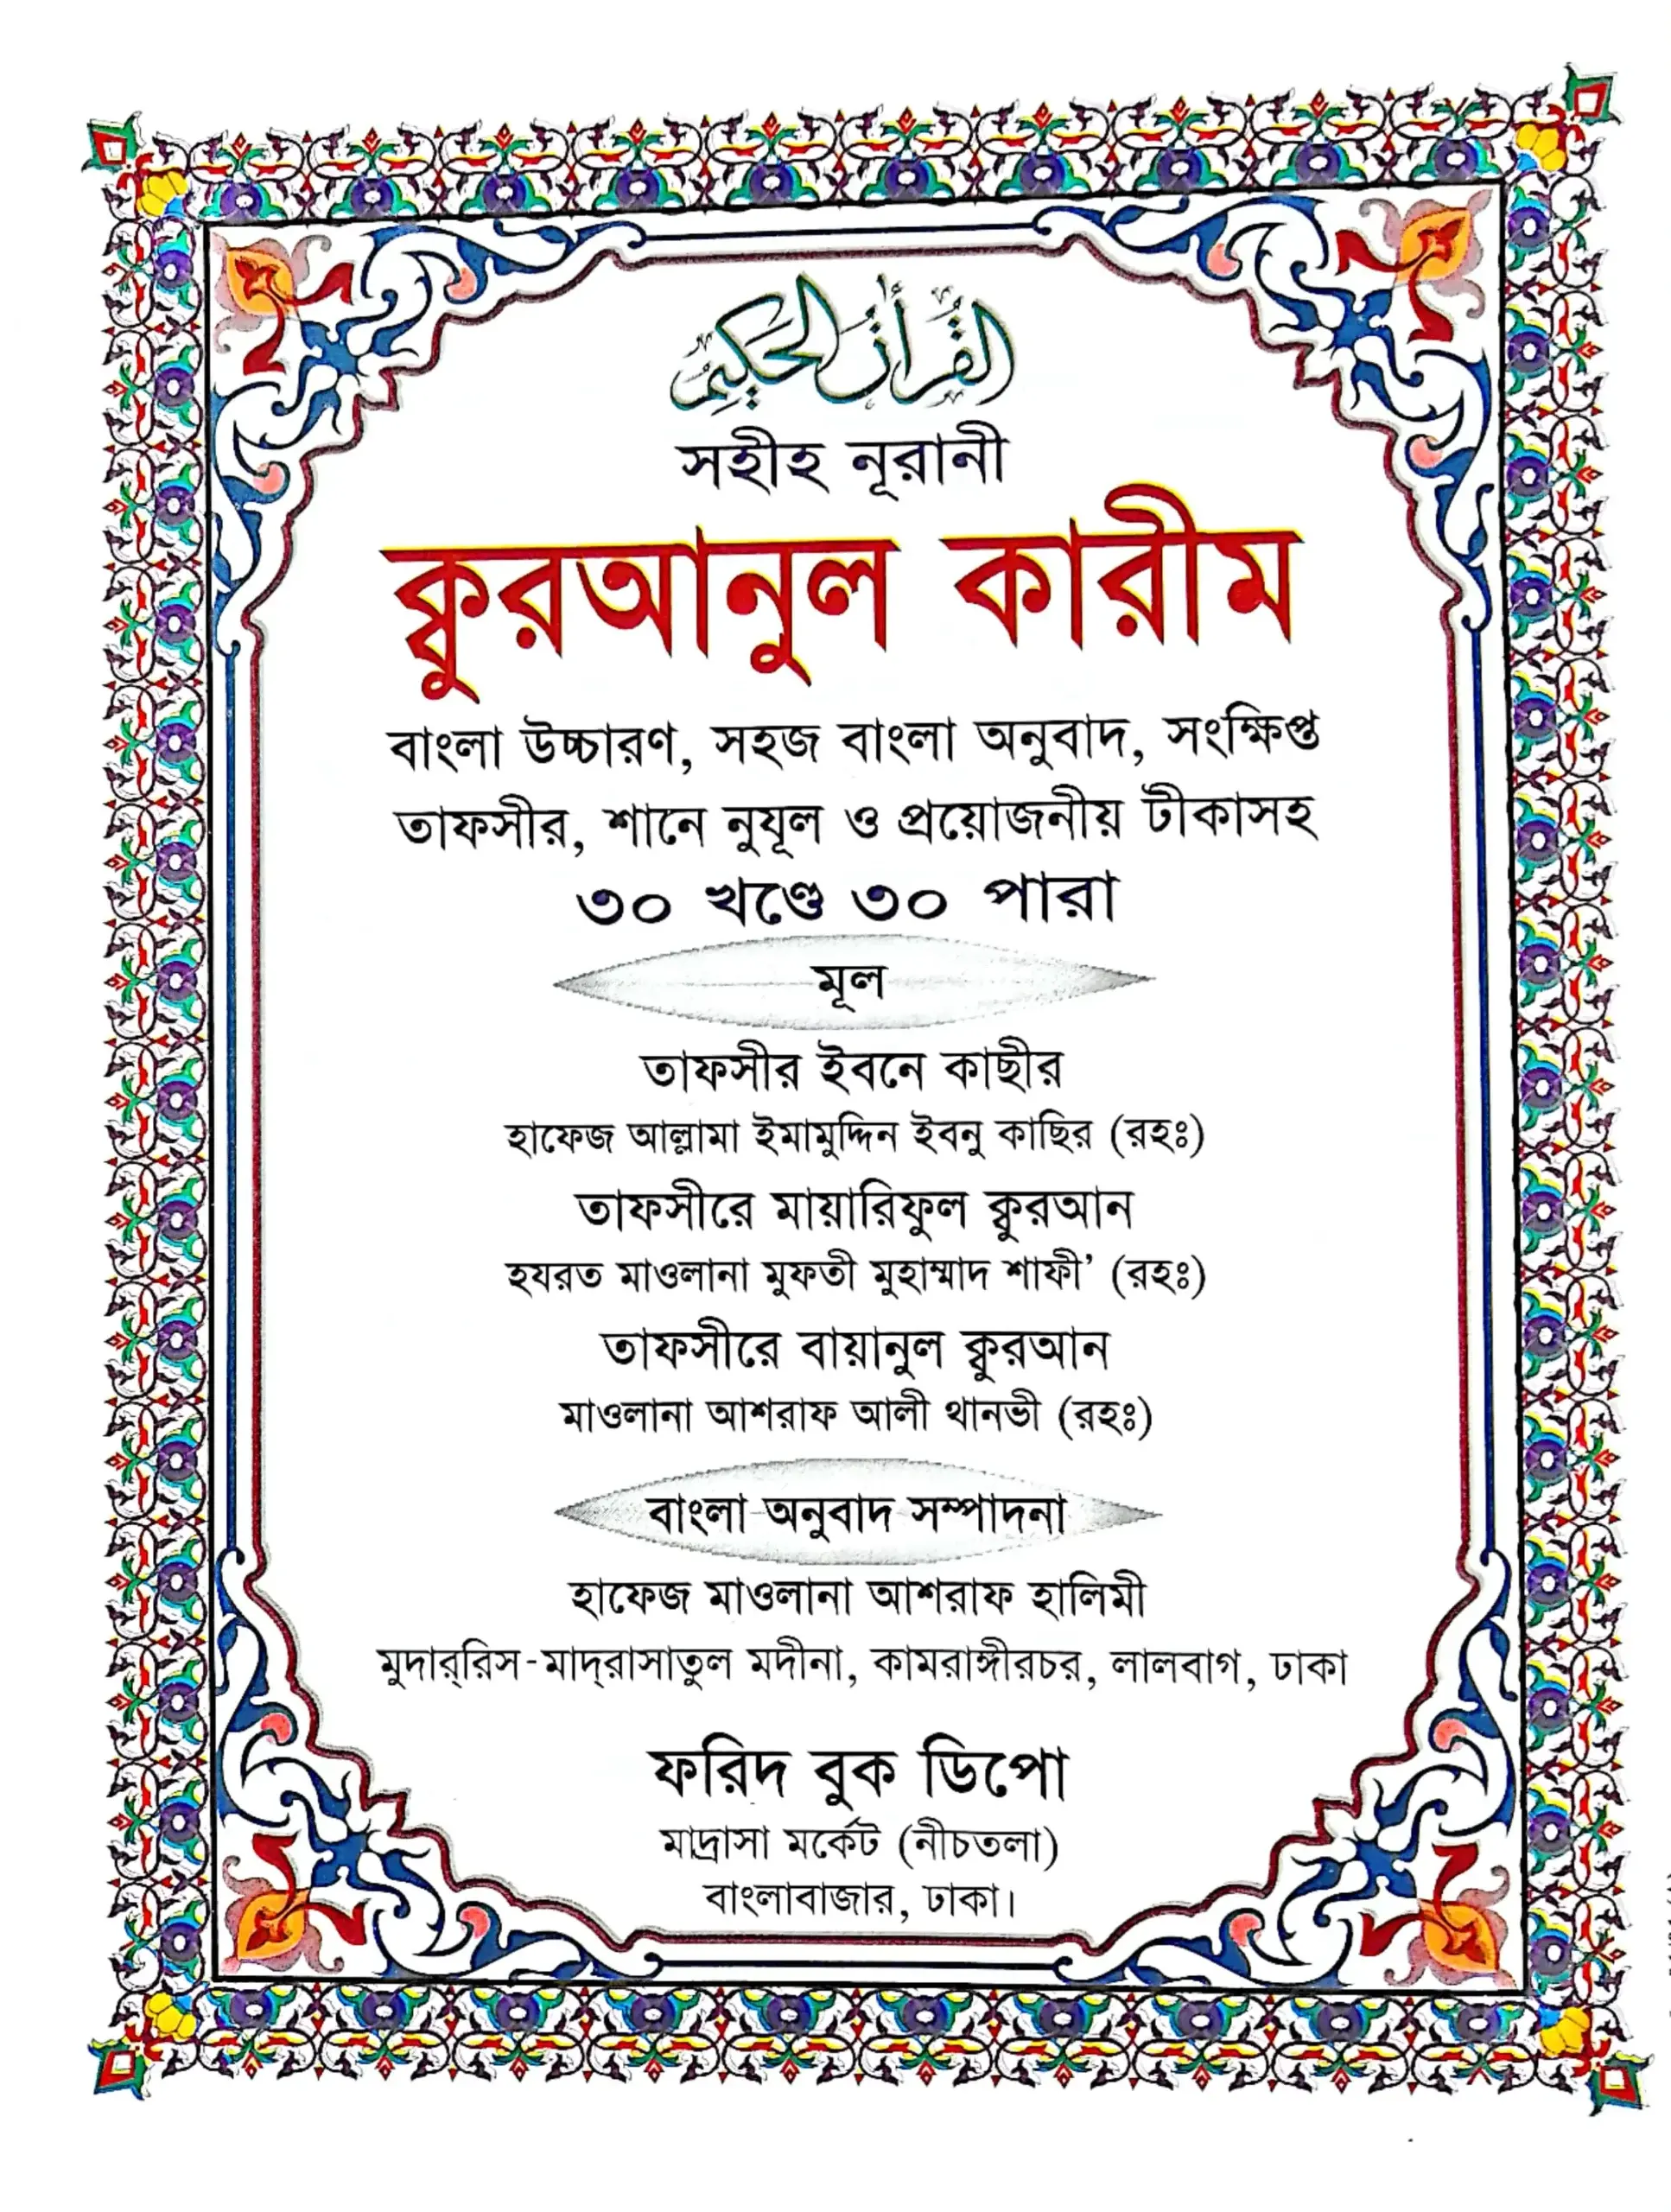 القرآن الحكيم
সহীহ নূরানী
ক্বুরআনুল কারীম
বাংলা উচ্চারণ, সহজ বাংলা অনুবাদ, সংক্ষিপ্ত
তাফসীর, শানে নুযূল ও প্রয়োজনীয় টীকাসহ
৩০ খণ্ডে ৩০ পারা
মূল
তাফসীর ইবনে কাছীর
হাফেজ আল্লামা ইমামুদ্দিন ইবনু কাছির (রহঃ)
তাফসীরে মায়ারিফুল ক্বুরআন
হযরত মাওলানা মুফতী মুহাম্মাদ শাফী’ (রহঃ)
তাফসীরে বায়ানুল ক্বুরআন
মাওলানা আশরাফ আলী থানভী (রহঃ)
বাংলা অনুবাদ সম্পাদনা
হাফেজ মাওলানা আশরাফ হালিমী
মুদার্‌রিস-মাদ্‌রাসাতুল মদীনা, কামরাঙ্গীরচর, লালবাগ, ঢাকা
ফরিদ বুক ডিপো
মাদ্রাসা মর্কেট (নীচতলা)
বাংলাবাজার, ঢাকা।